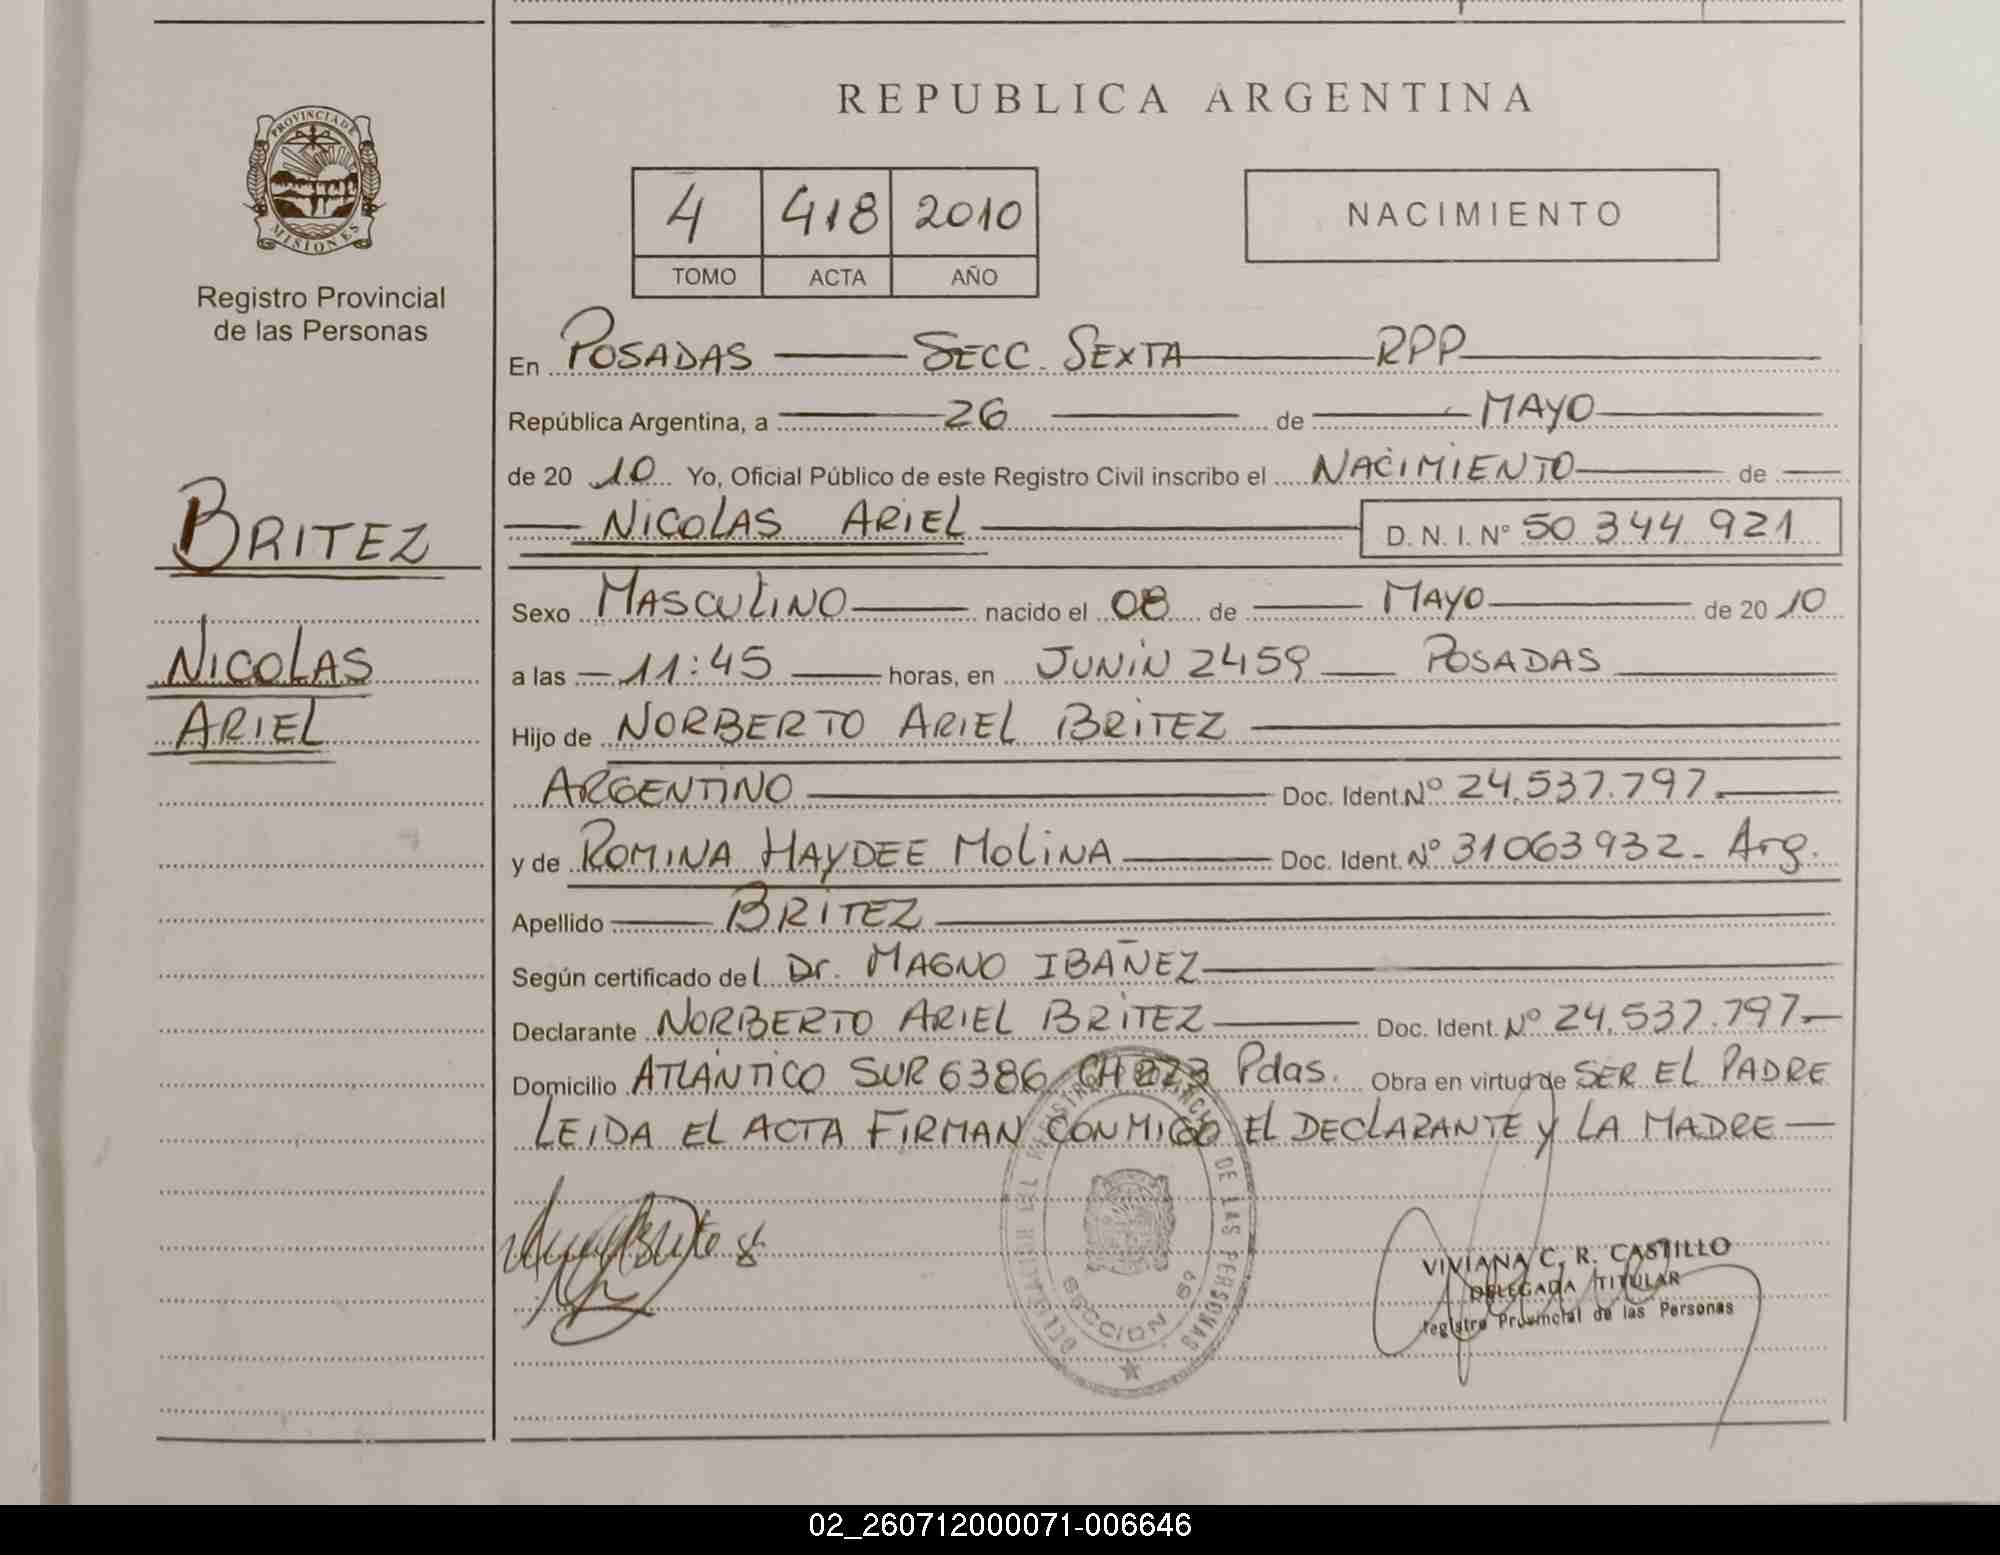 REPUBLICA ARGENTINA
PROVINCIA DE
MISIONES
Registro Provincial
de las Personas
4 418 2010
TOMO ACTA AÑO
NACIMIENTO
En POSADAS SECC. SEXTA RPP
República Argentina, a 26 de MAYO
de 20 10 Yo, Oficial Público de este Registro Civil inscribo el NACIMIENTO de
NICOLAS ARIEL D. N. I. Nº 50 344 921
BRITEZ
NICOLAS
ARIEL
Sexo MASCULINO nacido el 08 de MAYO de 20 10
a las 11:45 horas, en JUNIN 2459 POSADAS
Hijo de NORBERTO ARIEL BRITEZ
ARGENTINO Doc. Ident. Nº 24.537.797.
y de ROMINA HAYDEE MOLINA Doc. Ident. Nº 31063932- Arg.
Apellido BRITEZ
Según certificado del Dr. MAGNO IBAÑEZ
Declarante NORBERTO ARIEL BRITEZ Doc. Ident. Nº 24.537.797-
Domicilio ATLANTICO SUR 6386 CH 223 Pdas. Obra en virtud de SER EL PADRE
LEIDA EL ACTA FIRMAN CONMIGO EL DECLARANTE y LA MADRE
DE LAS PERSONAS
SECCION 6ª
VIVIANA C. R. CASTILLO
DELEGADA TITULAR
registro Provincial de las Personas
02_260712000071-006646